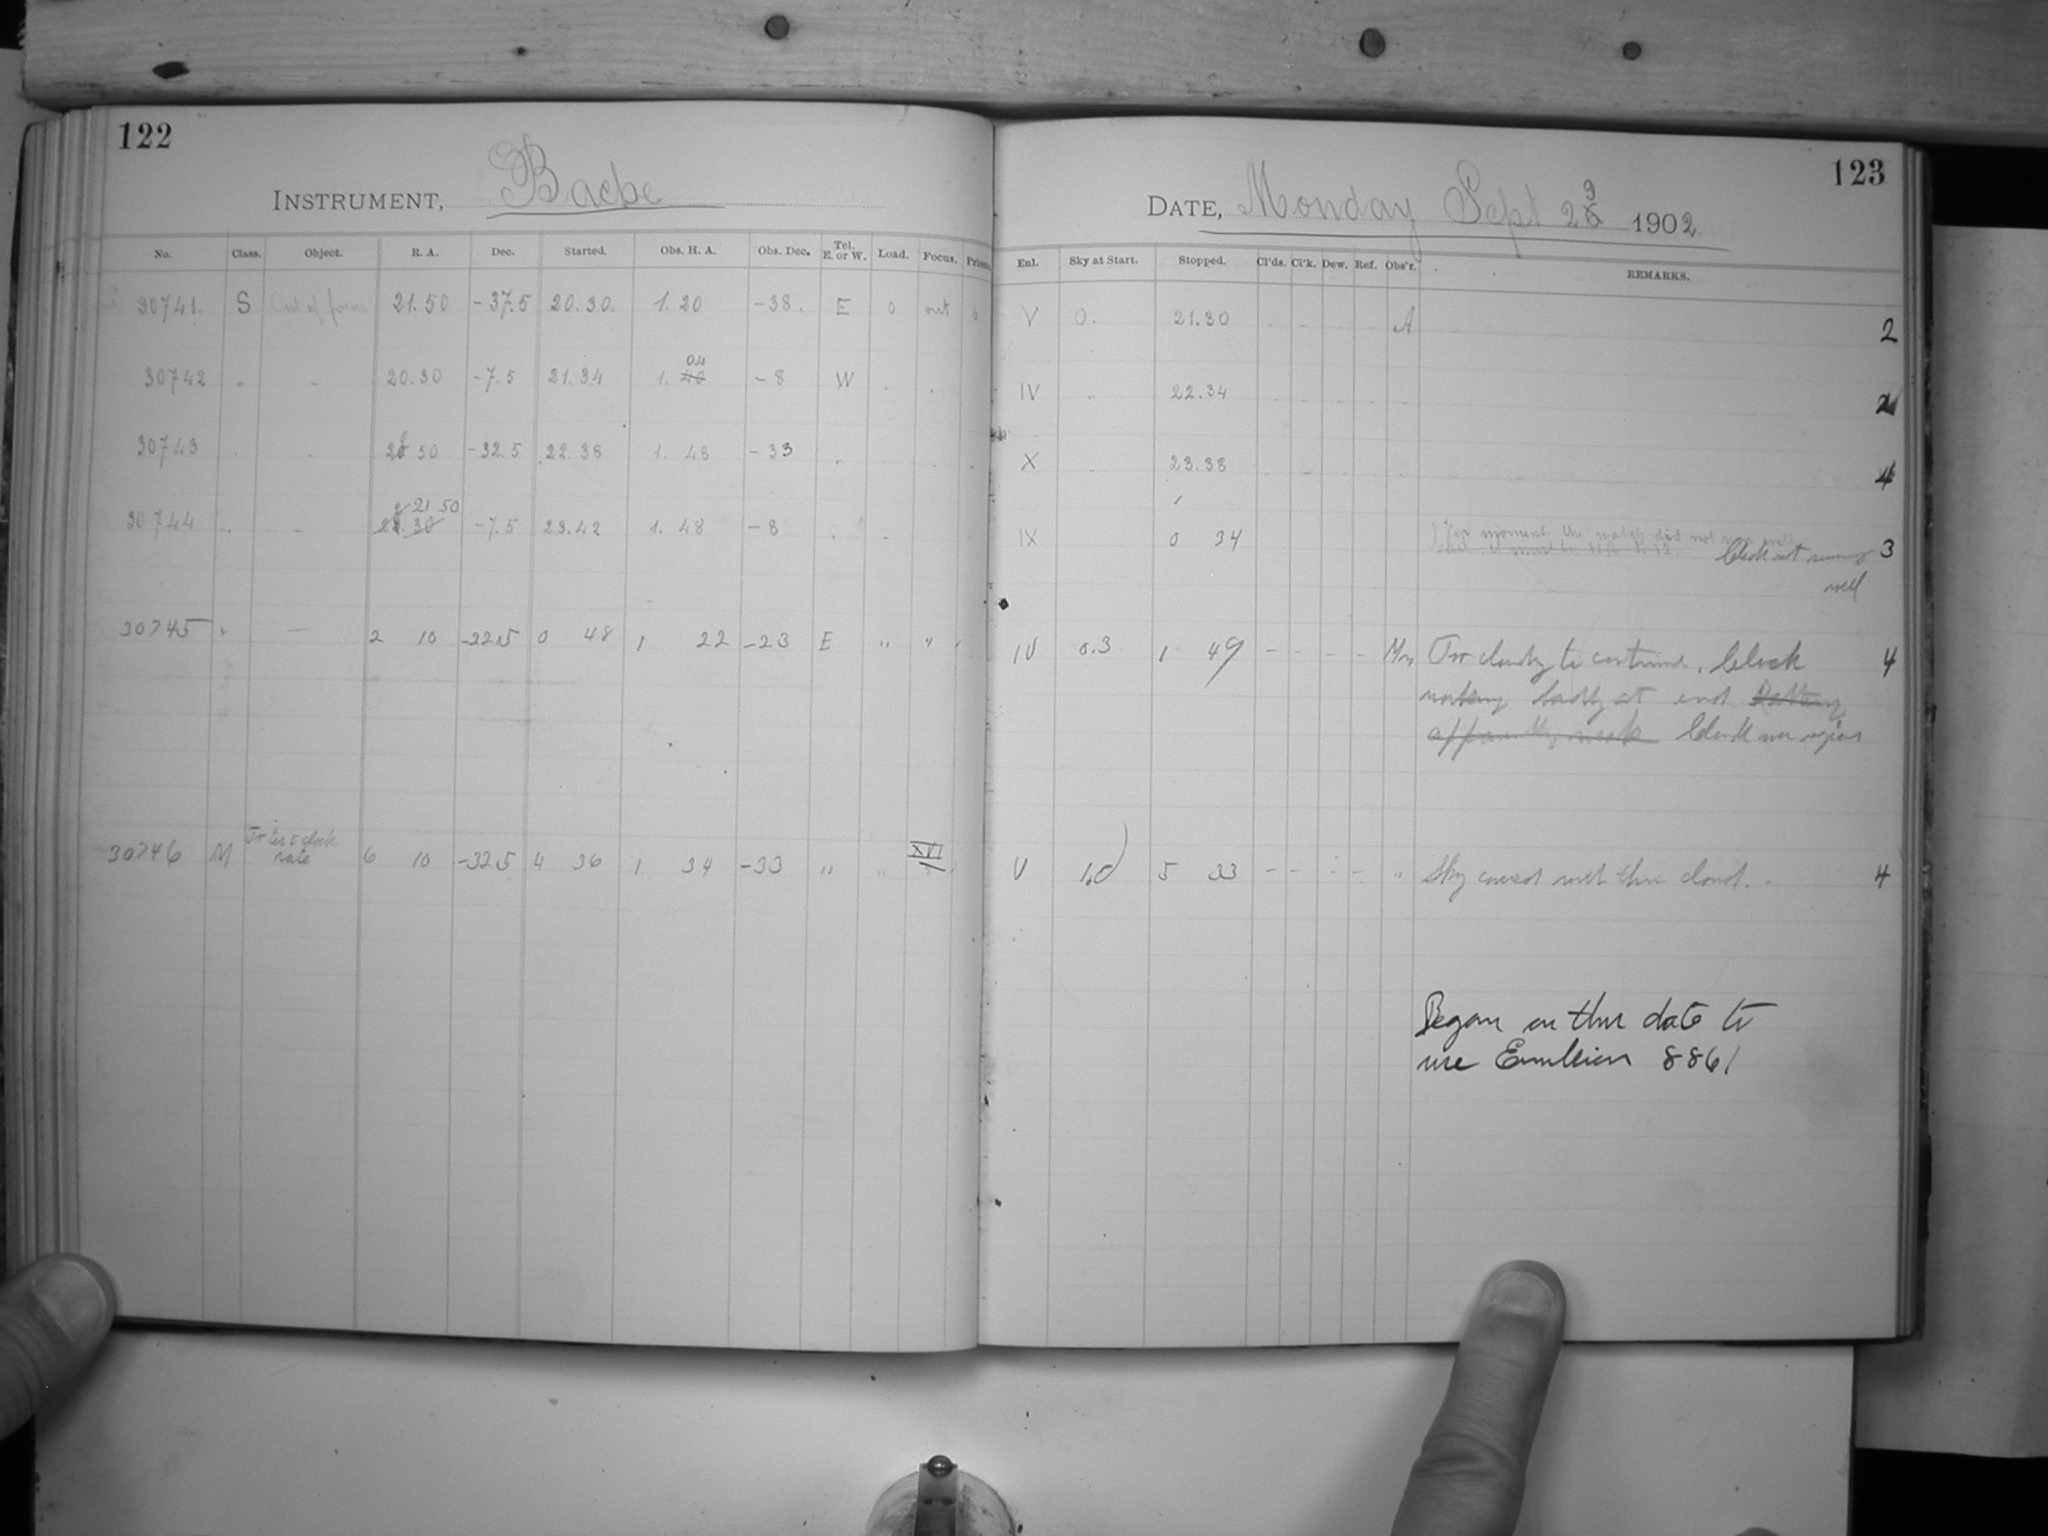 122
INSTRUMENT, Bache
No. Class. Object. R. A. Dec. Started. Obs. H. A. Obs. Dec. Tel. E. or W. Load. Focus. Prism
30741. S Out of focus 21.50 -37.5 20.30. 1. 20 -38. E 0 out 0
30742 " " 20.30 -7.5 21.34 1. 04 -8 W . .
30743 . " 20 50 -32.5 22.38 1. 48 -33 " . . .
30744 " " 21 50 -7.5 23.42 1. 48 -8 . .
30745 " — 2 10 -22.5 0 48 1 22 -23 E " " "
30746 M To test clock rate 6 10 -32.5 4 36 1 34 -33 " " XVI
123
DATE, Monday Sept 29 1902
Enl. Sky at Start. Stopped. Cl'ds. Cl'k. Dew. Ref. Obs'r. REMARKS.
V 0. 21.30 A 2
IV " 22.34 2
X " 23.38 4
IX 0 34 Clock not running 3
well
IV 0.3 1 49 - - - - Too cloudy to continue. Clock 4
working badly at end Battery
apparently weak Clock
V 1.0 5 33 - - - - " Sky covered with thin cloud. 4
Began on this date to
use Emulsion 8861